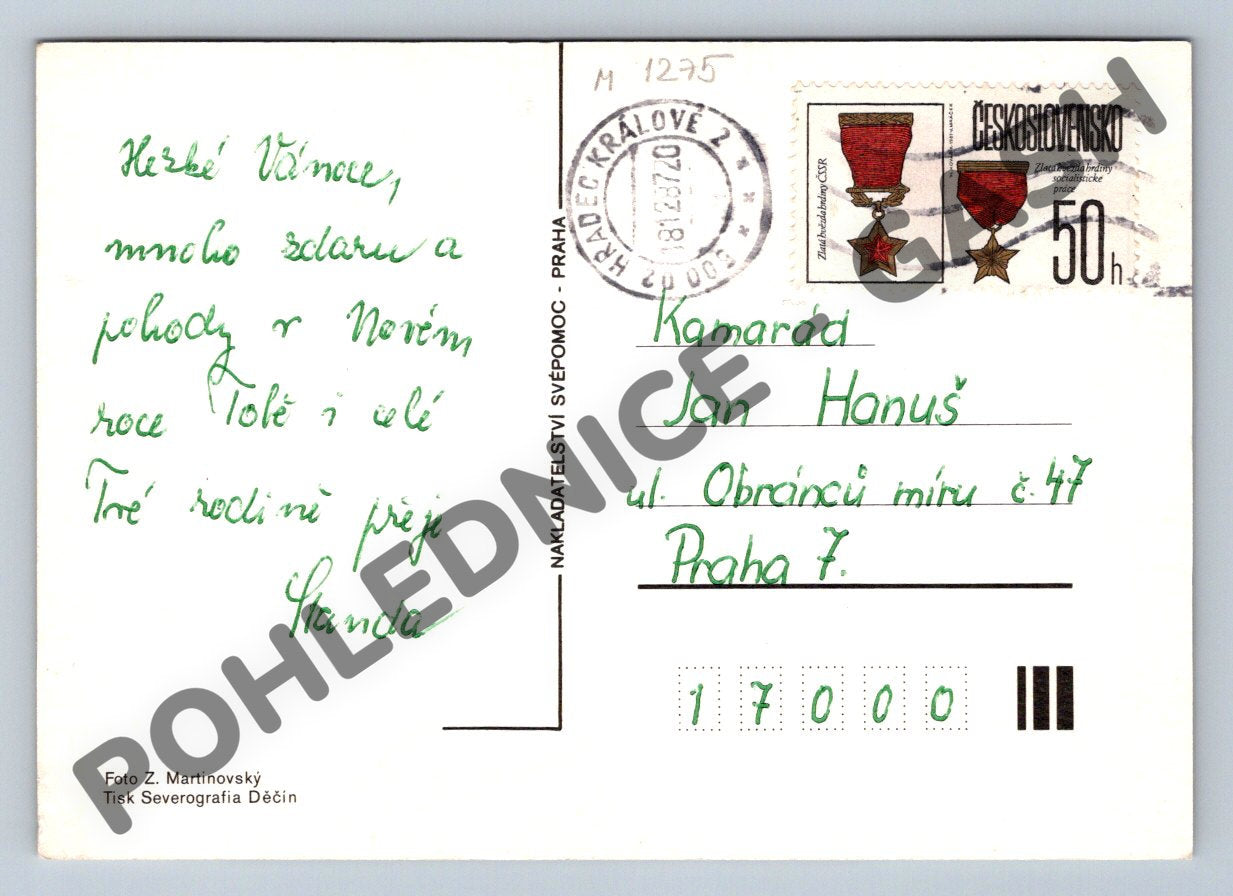 M 1275
Hezké Vánoce,
mnoho zdaru a
pohody v Novém
roce Tobě i celé
Tvé rodině přeje
Standa
Foto Z. Martinovský
Tisk Severografia Děčín
NAKLADATELSTVÍ SVÉPOMOC - PRAHA
500 02 HRADEC KRÁLOVÉ 2
18.12.87.20
Zlatá hvězda hrdiny ČSSR
ČESKOSLOVENSKO
Zlatá hvězda hrdiny
socialistické
práce
50 h
Kamarád
Jan Hanuš
ul. Obránců míru č. 47
Praha 7.
17000
POHLEDNICE - GASH